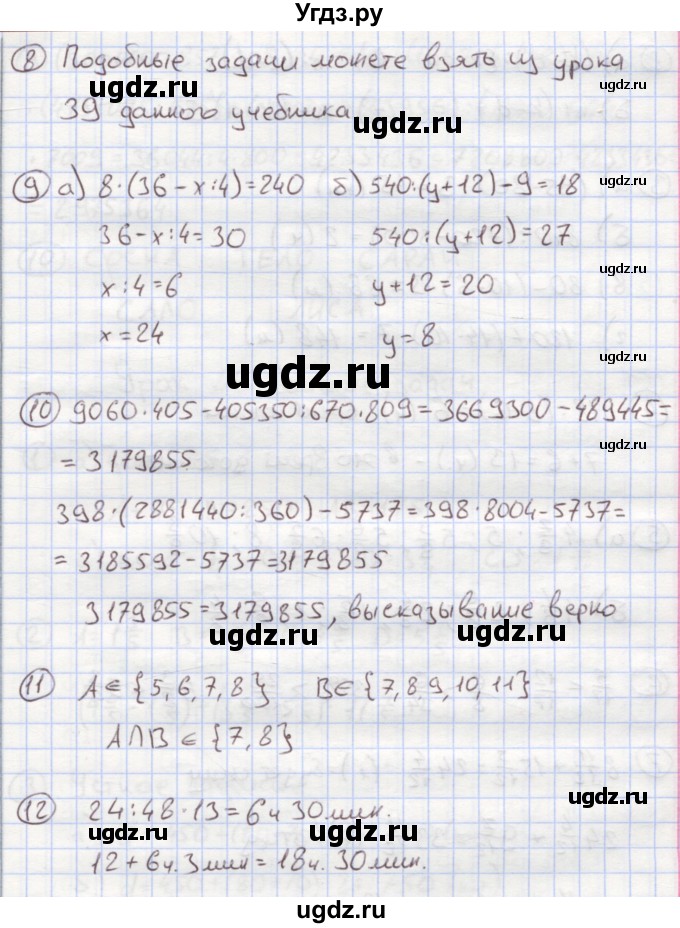 Угдз.ру
8 Подобные задачи можете взять из урока
ugdz.ru ugdz.ru
39 данного учебника
ugdz.ru
9 а) 8·(36-x:4)=240 б) 540:(y+12)-9=18
ugdz.ru
36-x:4=30 540:(y+12)=27
ugdz.ru
x:4=6 y+12=20
x=24 y=8
ugdz.ru
ugdz.ru
10 9060·405-405350:670·809=3669300-489445=
ugdz.ru
=3179855
ugdz.ru
398·(2881440:360)-5737=398·8004-5737=
ugdz.ru
=3185592-5737=3179855
3179855=3179855, высказывание верно
ugdz.ru ugdz.ru
11 A∈{5,6,7,8} B∈{7,8 9,10,11}
A∩B∈{7,8}
ugdz.ru
ugdz.ru
12 24:48·13=6ч 30мин.
ugdz.ru ugdz.ru
12+6ч.3мин=18ч.30мин.
ugdz.ru
ugdz.ru